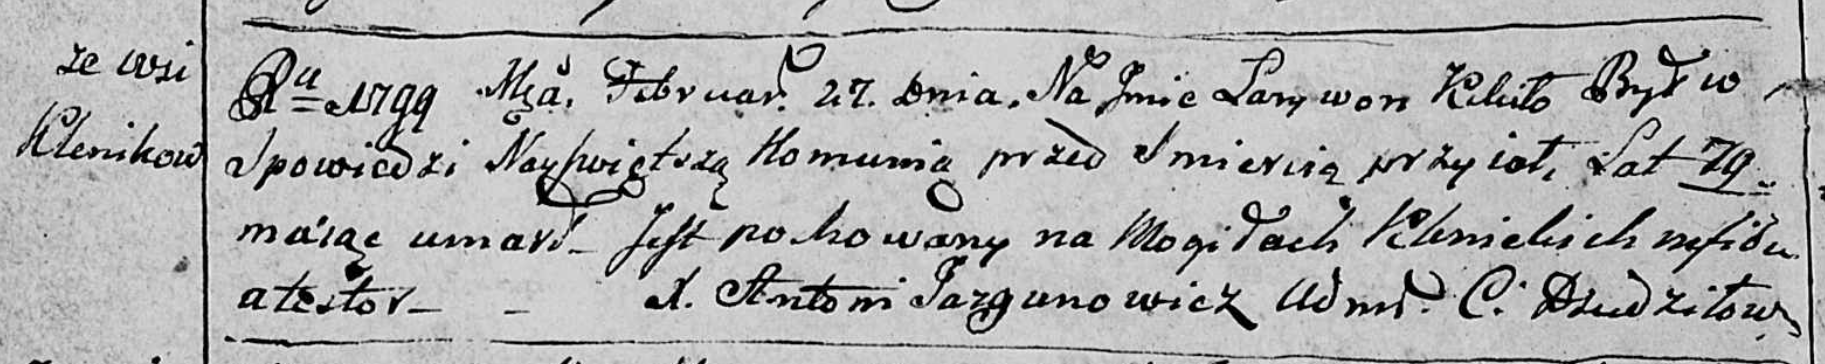 ze wsi
Klenikow
Ru 1799 Mca. Februar. 27. dnia. Na Jmie Larywon Był w
Spowiedzi Nayswiętszą Komunią przed Smiercią przyioł, Lat 79.
maiąc umarł Jest pochowany na Mogiłach Klenickich
atestor X. Antoni Jazgunowicz Adm. C.